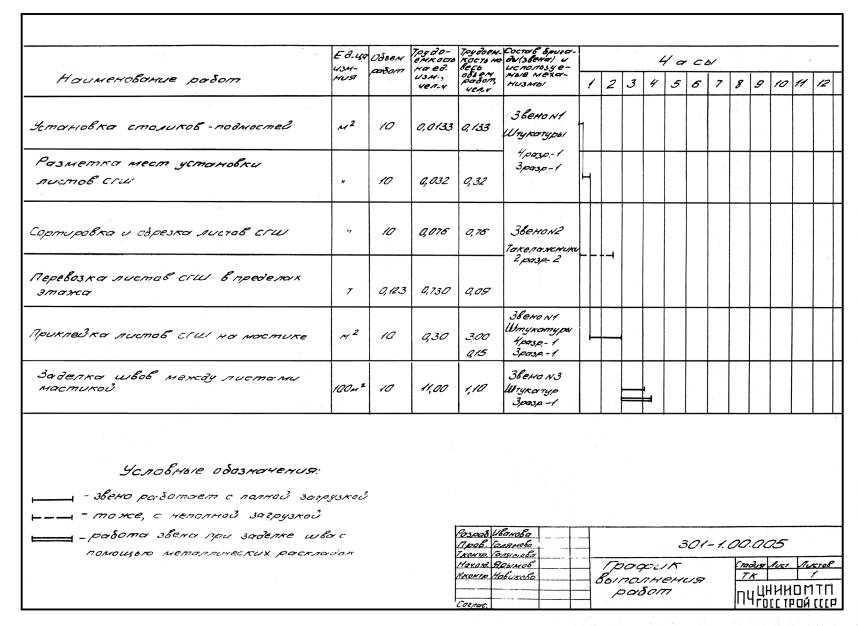 Наименование работ
Ед.ца изм-ния
Объем работ
Трудо-емкость на ед. изм., чел.-ч
Трудоем-кость на весь объем работ, чел.ч
Состав брига-ды (звена) и используе-мые меха-низмы
Часы
1 2 3 4 5 6 7 8 9 10 11 12
Установка столиков-подмостей м² 10 0,0133 0,133
Звено N1
Штукатуры
4разр.-1
3разр-1
Разметка мест установки
листов СГШ " 10 0,032 0,32
Сортировка и обрезка листов СГШ " 10 0,076 0,76
Звено N2
Такелажники
2разр-2
Перевозка листов СГШ в пределах
этажа т 0,123 0,730 0,09
Приклейка листов СГШ на мастике м² 10 0,30 3.00
0,15
Звено N1
Штукатуры
4разр.-1
3разр-1
Заделка швов между листами
мастикой 100м² 10 11,00 1,10
Звено N3
Штукатур
3разр-1
Условные обозначения:
- звено работает с полной загрузкой
- то же, с неполной загрузкой
- работа звена при заделке шва с
помощью металлических раскладок
Разраб. Иванова
Пров. Галямова
Т.контр. Галямова
Нач.отд. Ярымов
Н.контр. Новикова
Соглас.
301-1.00.005
График
выполнения
работ
Стадия Лист Листов
ТК 1
ПЧ ЦНИИОМТП
ГОССТРОЙ СССР